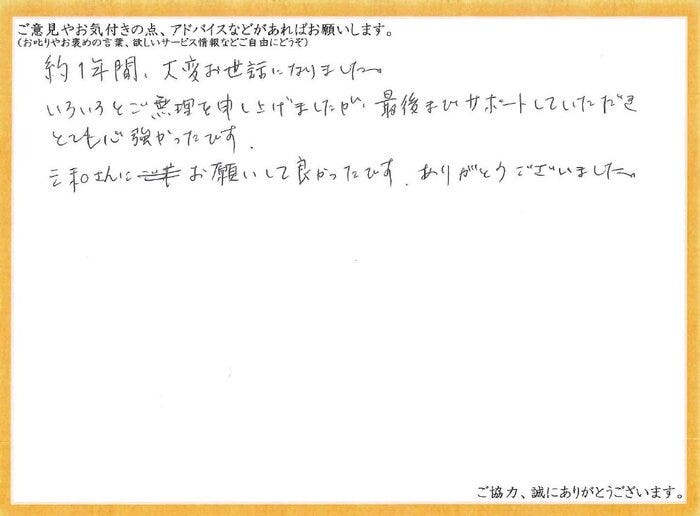 ご意見やお気付きの点、アドバイスなどがあればお願いします。
(お叱りやお褒めの言葉、欲しいサービス情報などご自由にどうぞ)
約1年間、大変お世話になりました。
いろいろとご無理を申し上げましたが、最後までサポートしていただき
とても心強かったです.
三和さんにお願いして良かったです. ありがとうございました。
ご協力、誠にありがとうございます。